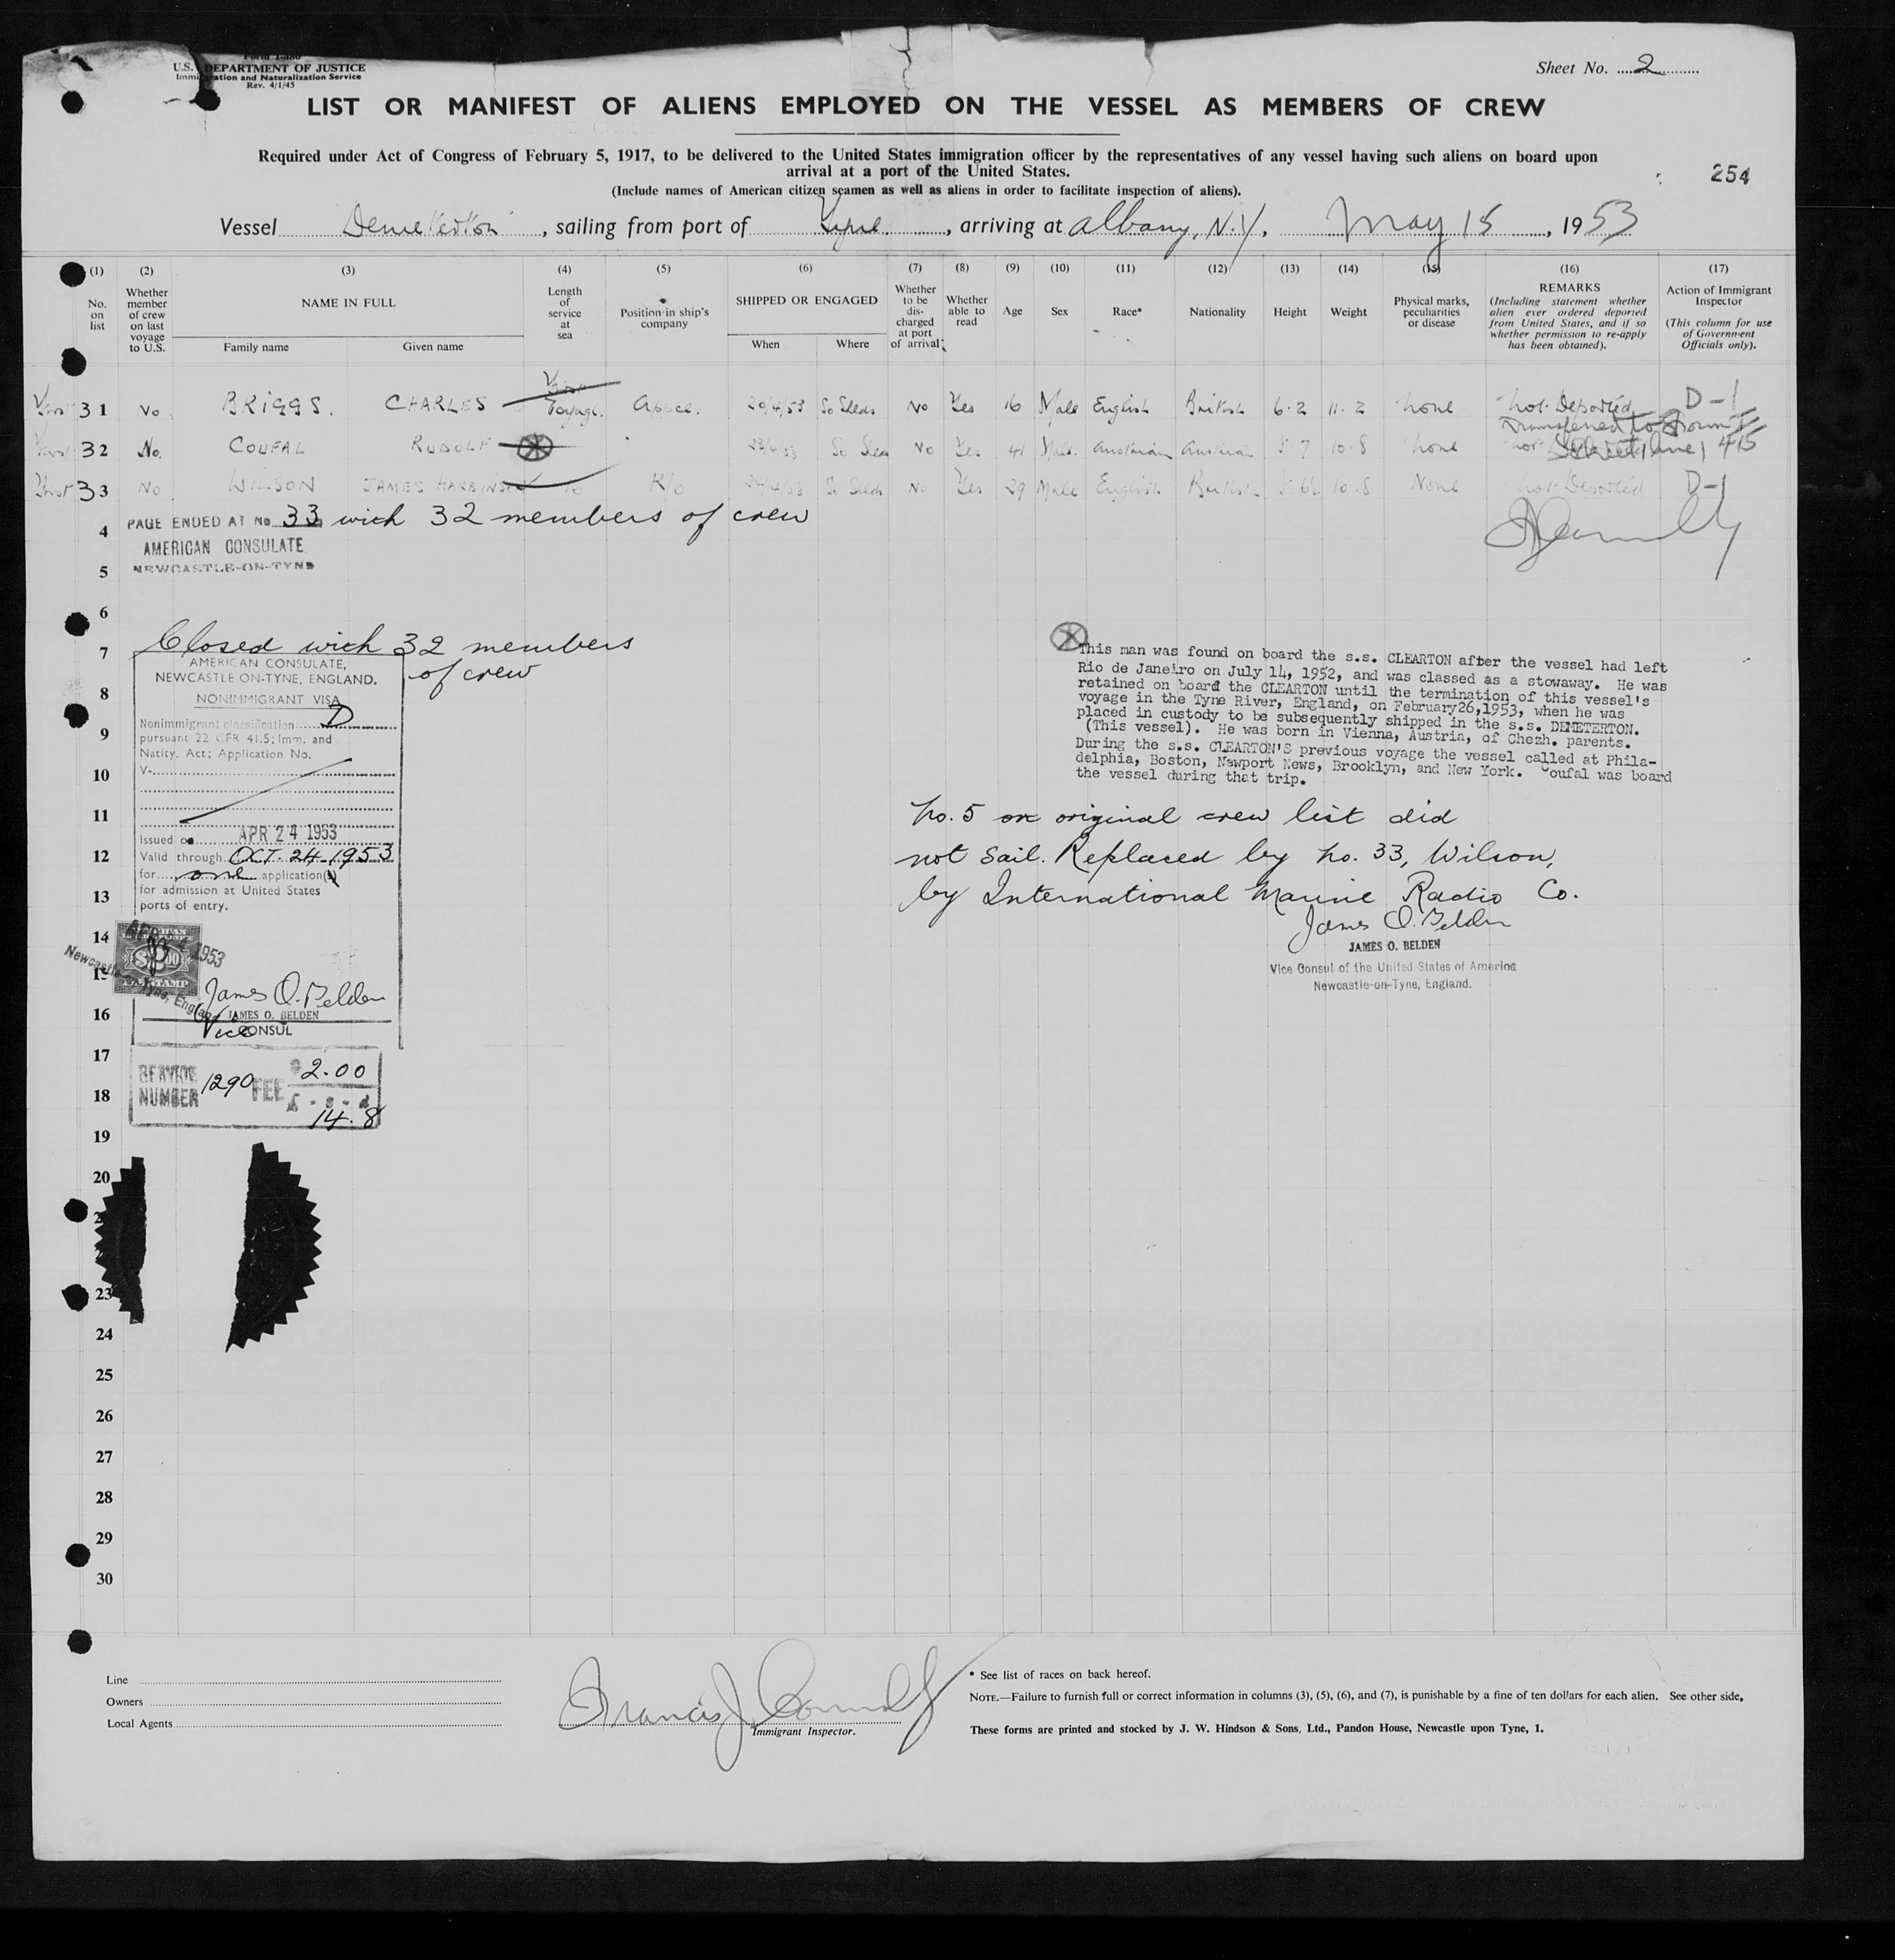 Form I-480
U.S. DEPARTMENT OF JUSTICE
Immigration and Naturalization Service
Rev. 4/1/45
Sheet No. 2
LIST OR MANIFEST OF ALIENS EMPLOYED ON THE VESSEL AS MEMBERS OF CREW
Required under Act of Congress of February 5, 1917, to be delivered to the United States immigration officer by the representatives of any vessel having such aliens on board upon
arrival at a port of the United States.
(Include names of American citizen seamen as well as aliens in order to facilitate inspection of aliens).
254
Vessel Demeterton, sailing from port of, arriving at Albany, N.Y., May 15, 1953
(1) (2) (3) (4) (5) (6) (7) (8) (9) (10) (11) (12) (13) (14) (15) (16) (17)
No. on list
Whether member of crew on last voyage to U.S.
NAME IN FULL
Family name Given name
Length of service at sea
Position in ship's company
SHIPPED OR ENGAGED
When Where
Whether to be discharged at port of arrival
Whether able to read
Age
Sex
Race*
Nationality
Height
Weight
Physical marks, peculiarities or disease
REMARKS
(Including statement whether alien ever ordered deported from United States, and if so whether permission to re-apply has been obtained).
Action of Immigrant Inspector
(This column for use of Government Officials only).
31 No BRIGGS. CHARLES Voyage. Appce. 20/4/53 So Slds No Yes 16 Male English British 6-2 11-2 None Not Deported D-1
32 No. COUFAL RUDOLF 23/4/53 So Slds No Yes 41 Male. Austrian Austrian 5 7 10-8 None Not
33 No WILSON JAMES HARBINSON 10 R/o 24/4/53 So Slds No Yes 29 Male English British 10-8 None Not Deported D-1
4 PAGE ENDED AT No 33 with 32 members of crew
AMERICAN CONSULATE
5 NEWCASTLE-ON-TYNE
6
7 Closed with 32 members
of crew
AMERICAN CONSULATE,
NEWCASTLE-ON-TYNE, ENGLAND.
8 NONIMMIGRANT VISA
Nonimmigrant classification D
9 pursuant 22 CFR 41.5; Imm. and
Natity. Act; Application No.
10 V-
11
Issued on APR 24 1953
12 Valid through OCT. 24 1953
for one application(s)
13 for admission at United States
ports of entry.
14
15
James O. Belden
16 JAMES O. BELDEN
Vice CONSUL
17 SERVICE NUMBER 1290 FEE $2.00
18 £ - s - d
14. 8
19
20
23
24
25
26
27
28
29
30
This man was found on board the s.s. CLEARTON after the vessel had left
Rio de Janeiro on July 14, 1952, and was classed as a stowaway. He was
retained on board the CLEARTON until the termination of this vessel's
voyage in the Tyne River, England, on February26,1953, when he was
placed in custody to be subsequently shipped in the s.s. DEMETERTON.
(This vessel). He was born in Vienna, Austria, of Chezh. parents.
During the s.s. CLEARTON'S previous voyage the vessel called at Phila-
delphia, Boston, Newport News, Brooklyn, and New York. Coufal was board
the vessel during that trip.
No. 5 on original crew list did
not sail. Replaced by No. 33, Wilson,
by International Marine Radio Co.
James O. Belden
JAMES O. BELDEN
Vice Consul of the United States of America
Newcastle-on-Tyne, England.
Line
Owners
Local Agents
Francis J. Connolly
Immigrant Inspector.
* See list of races on back hereof.
NOTE.—Failure to furnish full or correct information in columns (3), (5), (6), and (7), is punishable by a fine of ten dollars for each alien. See other side.
These forms are printed and stocked by J. W. Hindson & Sons, Ltd., Pandon House, Newcastle upon Tyne, 1.